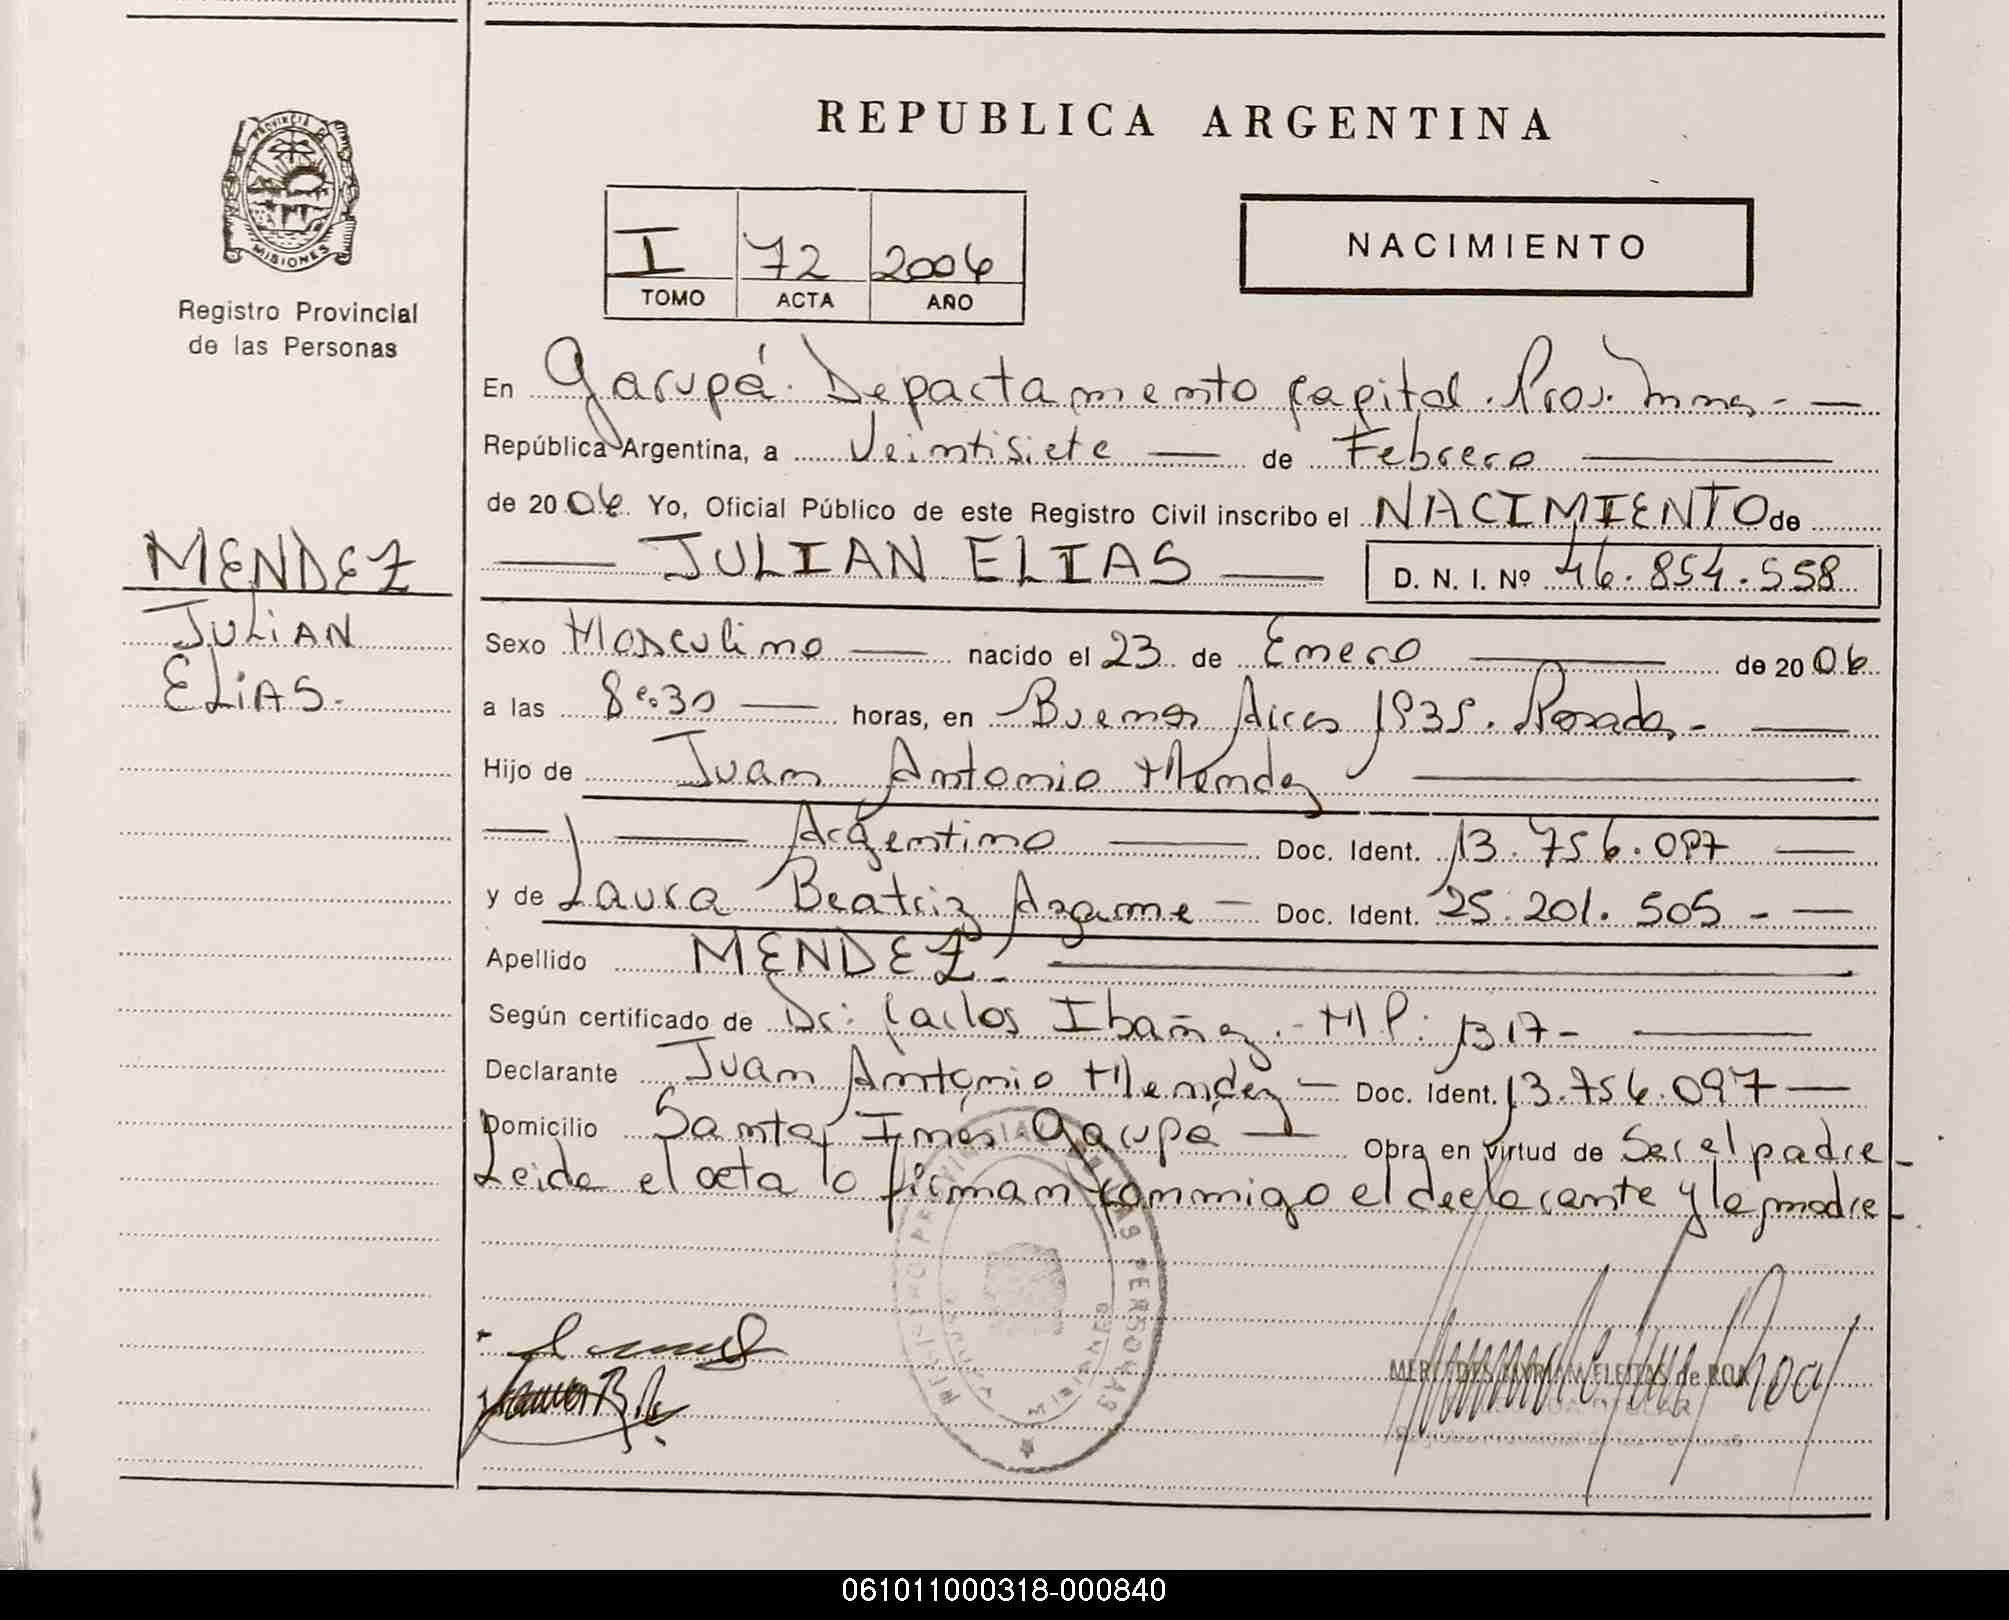 REPUBLICA ARGENTINA
PROVINCIA DE
MISIONES
Registro Provincial
de las Personas
I 72 2006
TOMO ACTA AÑO
NACIMIENTO
En Garupá. Departamento Capital. Prov. Mnes.
República Argentina, a Veintisiete de Febrero
de 2006 Yo, Oficial Público de este Registro Civil inscribo el NACIMIENTO de
JULIAN ELIAS D. N. I. Nº 46.854.558
MENDEZ
JULIAN
ELIAS.
Sexo Masculino nacido el 23 de Enero de 2006
a las 8:30 horas, en Buenos Aires 1935. Posadas.
Hijo de Juan Antonio Mendez
Argentino Doc. Ident. 13.756.097
y de Laura Beatriz Azame Doc. Ident. 25.201.505 -
Apellido MENDEZ.
Según certificado de Dr: Carlos Ibañez.- MP: 1317-
Declarante Juan Antonio Mendez Doc. Ident. 13.756.097
Domicilio Santa Inés Garupá Obra en virtud de Ser el padre-
Leida el acta lo firman conmigo el declarante y la madre-
REGISTRO PROVINCIAL DE LAS PERSONAS
MERCEDES MYRIAM FLEITAS de ROA
061011000318-000840